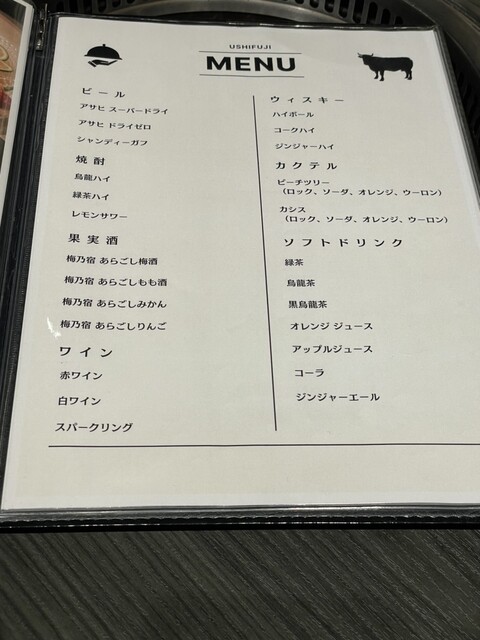 USHIFUJI
MENU
ビール
アサヒ スーパードライ
アサヒ ドライゼロ
シャンディーガフ
焼酎
烏龍ハイ
緑茶ハイ
レモンサワー
果実酒
梅乃宿 あらごし梅酒
梅乃宿 あらごしもも酒
梅乃宿 あらごしみかん
梅乃宿 あらごしりんご
ワイン
赤ワイン
白ワイン
スパークリング
ウィスキー
ハイボール
コークハイ
ジンジャーハイ
カクテル
ピーチツリー
（ロック、ソーダ、オレンジ、ウーロン）
カシス
（ロック、ソーダ、オレンジ、ウーロン）
ソフトドリンク
緑茶
烏龍茶
黒烏龍茶
オレンジ ジュース
アップルジュース
コーラ
ジンジャーエール